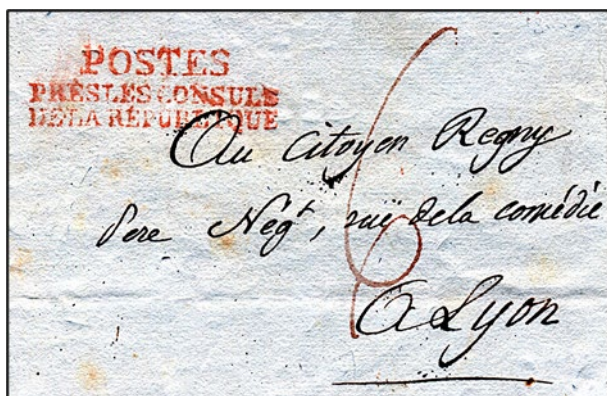 POSTES
PRÈS LES CONSULS
DE LA RÉPUBLIQUE
Au Citoyen Regny
Pere Négt, ruë dela comédie
6
A Lyon